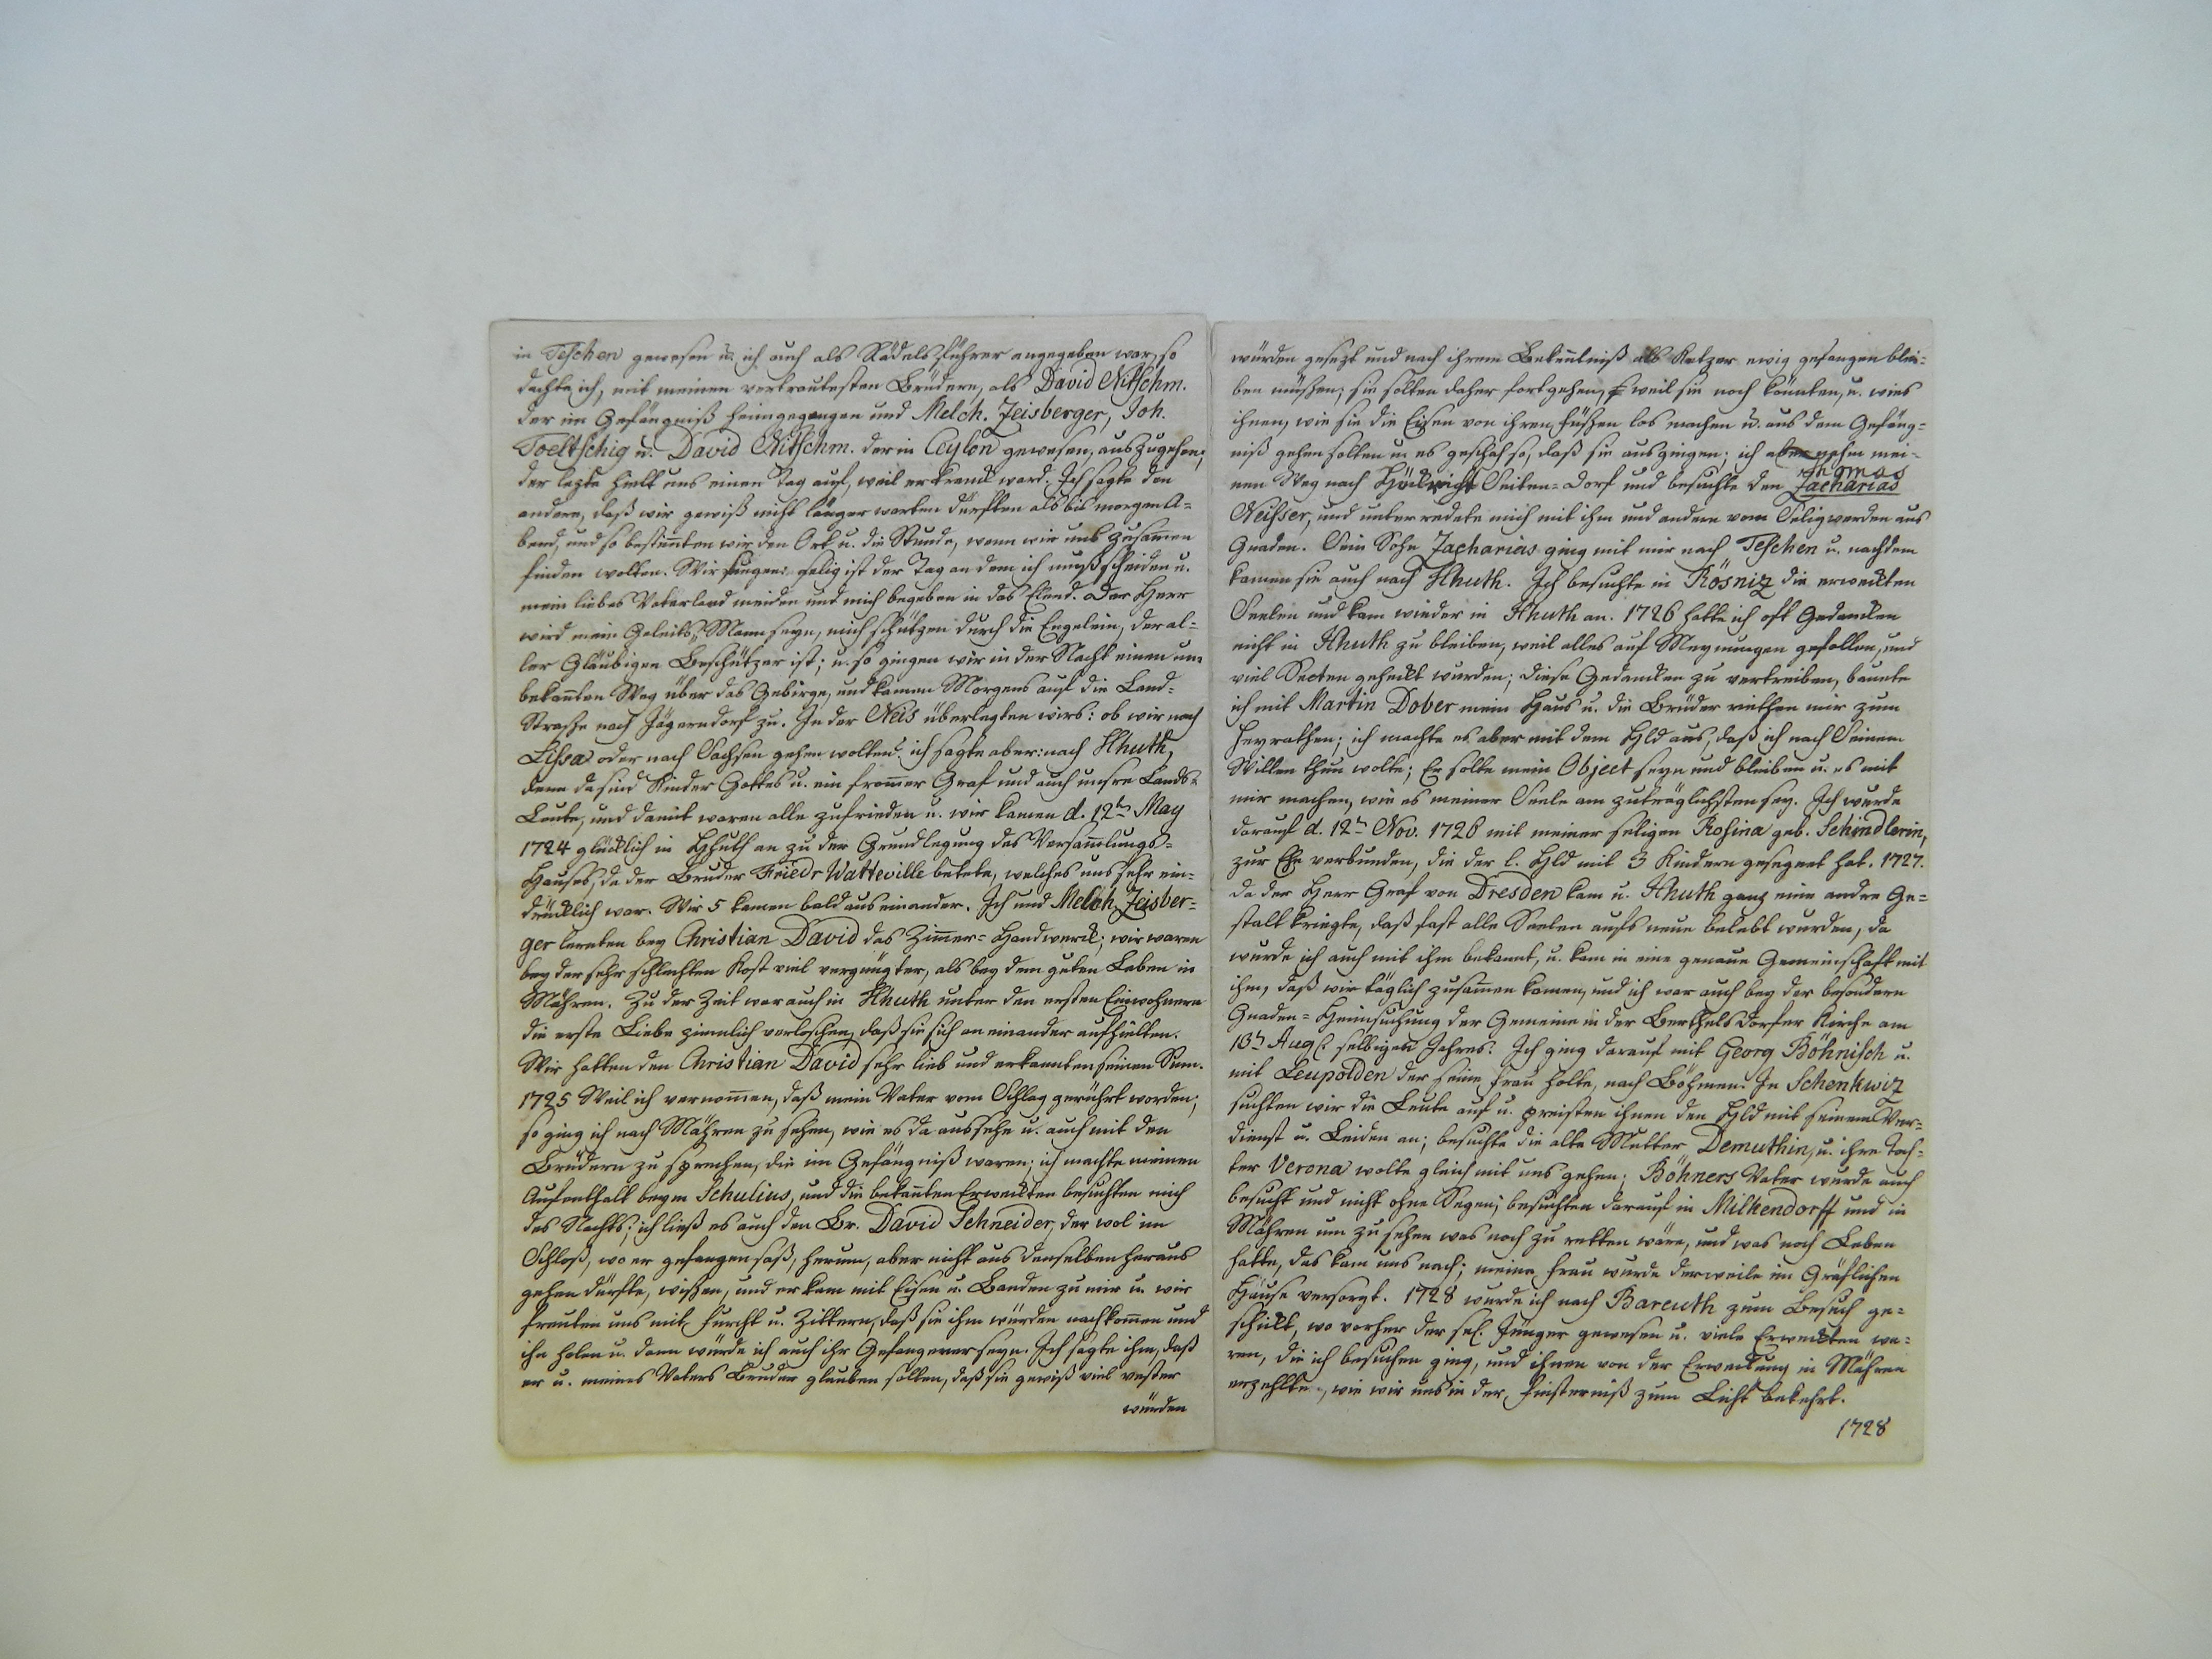 in Teschen gewesen u. ich auch als Rädelsführer angegeben war, so
dachte ich, mit meinen vertrautesten Brüdern, als David Nitschm.
der im Gefängniß heimgegangen und Melch. Zeisberger, Joh.
Toeltschig u. David Nitschm. der in Ceylon gewesen, auszugehen;
der lezte hielt uns einen Tag auf, weil er kranck ward. Ich sagte den
andern, daß wir gewiß nicht länger warten dürften als bis morgen A-
bend, und so bestim̄ten wir den Ort u. die Stunde, wenn wir uns zusam̄en
finden wolten. Wir sungen: selig ist der Tag an dem ich muß scheiden u.
mein liebes Vaterland meiden und mich begeben in das Elend. Der Herr
wird mein Geleits-Mann seyn, mich schützen durch die Engelein, der al-
ler Gläubigen Beschützer ist; u. so gingen wir in der Nacht einen un-
bekan̄ten Weg über das Gebirge, und kamen Morgens auf die Land-
Straße nach Jägerndorf zu. In der Neis überlegten wirs: ob wir nach
Lissa oder nach Sachsen gehen wolten? ich sagte aber: nach Hhuth,
denn da sind Kinder Gottes u. ein from̄er Graf und auch unsre Lands-
Leute, und damit waren alle zufrieden u. wir kamen d. 12t May
1724 glücklich in Hhuth an zu der Grundlegung des Versam̄lungs-
Hauses, da der Bruder Friedr Watteville betete, welches uns sehr ein-
drücklich war. Wir 5 kamen bald aus einander. Ich und Melch. Zeisber-
ger lernten bey Christian David das Zim̄er-Handwerck; wir waren
bey der sehr schlechten Kost viel vergnügter, als bey dem guten Leben in
Mähren. Zu der Zeit war auch in Hhuth unter den ersten Einwohnern
die erste Liebe ziemlich verloschen, daß sie sich an einander aufhielten.
Wir hatten den Christian David sehr lieb und erkannten seinen Sinn.
1725 Weil ich vernom̄en, daß mein Vater vom Schlag gerührt worden;
so ging ich nach Mähren zu sehen, wie es da aussehe u. auch mit den
Brüdern zu sprechen, die im Gefängniß waren; ich machte meinen
Aufenthalt beym Schulius, und die bekan̄ten Erweckten besuchten mich
des Nachts; ich ließ es auch den Br. David Schneider, der wol im
Schloß, wo er gefangen saß, herum, aber nicht aus demselben heraus
gehen dürfte, wißen, und er kam mit Eisen u. Banden zu mir u. wir
freuten uns mit Furcht u. Zittern, daß sie ihm würden nachkom̄en und
ihn holen u. dann würde ich auch ihr Gefangener seyn. Ich sagte ihm, daß
er u. meines Vaters Bruder glauben solten, daß sie gewiß viel vester
würden
würden gesezt und nach ihrem Bekentniß als Ketzer ewig gefangen blei-
ben müßen; sie solten daher fortgehen, weil sie noch könten, u. wies
ihnen, wie sie die Eisen von ihren Füßen los machen u. aus dem Gefäng-
niß gehen solten u. es geschah so, daß sie ausgingen; ich aber nahm mei-
Thomas
nen Weg nach Seiten-Dorf und besuchte den Zacharias
Neisser, und unterredete mich mit ihm und andern vom Seligwerden aus
Gnaden. Sein Sohn Zacharias ging mit mir nach Teschen u. nachdem
kamen sie auch nach Hhuth. Ich besuchte in Rösniz die erweckten
Seelen und kam wieder in Hhuth an. 1726 hatte ich oft Gedancken
nicht in Hhuth zu bleiben, weil alles auf Meynungen gefallen, und
viel Secten geheckt wurden; diese Gedancken zu vertreiben, bauete
ich mit Martin Dober mein Haus u. die Brüder riethen mir zum
Heyrathen; ich machte es aber mit dem Hld aus, daß ich nach Seinem
Willen thun wolte; Er solte mein Object seyn und bleiben u. es mit
mir machen, wie es meiner Seele am zuträglichsten sey. Ich wurde
darauf d. 12t Nov. 1726 mit meiner seligen Rosina geb. Schindlerin,
zur Ehe verbunden, die der l. Hld mit 3 Kindern gesegnet hat. 1727.
da der Herr Graf von Dresden kam u. Hhuth ganz eine andre Ge-
stalt kriegte, daß fast alle Seelen aufs neue belebt wurden, da
wurde ich auch mit ihm bekannt, u. kam in eine genaue Gemeinschaft mit
ihm, daß wir täglich zusam̄en kamen, und ich war auch bey der besondern
Gnaden-Heimsuchung der Gemeine in der Berthelsdorfer Kirche am
13t Aug. selbigen Jahres. Ich ging darauf mit Georg Böhnisch u.
mit Leupolden der seine Frau holte, nach Böhmen. In Schenkwiz
suchten wir die Leute auf u. preisten ihnen den Hld mit seinem Ver-
dienst u. Leiden an; besuchte die alte Mutter Demuthin, u. ihre Toch-
ter Verona wolte gleich mit uns gehen; Böhners Vater wurde auch
besucht und nicht ohne Segen; besuchten darauf in Milkendorff und in
Mähren um zu sehen was noch zu retten wäre, und was noch Leben
hatte, das kam uns nach; meine Frau wurde derweile im Gräflichen
Hause versorgt. 1728 wurde ich nach Bareuth zum Besuch ge-
schickt, wo vorher der sel. Jünger gewesen u. viele Erweckten wa-
ren, die ich besuchen ging, und ihnen von der Erweckung in Mähren
erzehlte, wie wir uns in der Finsterniß zum Licht bekehrt.
1728